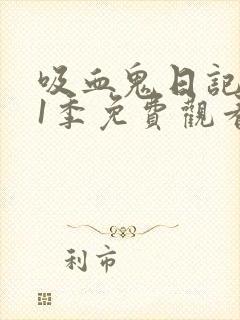 吸血鬼日記
1季免費觀看
利市